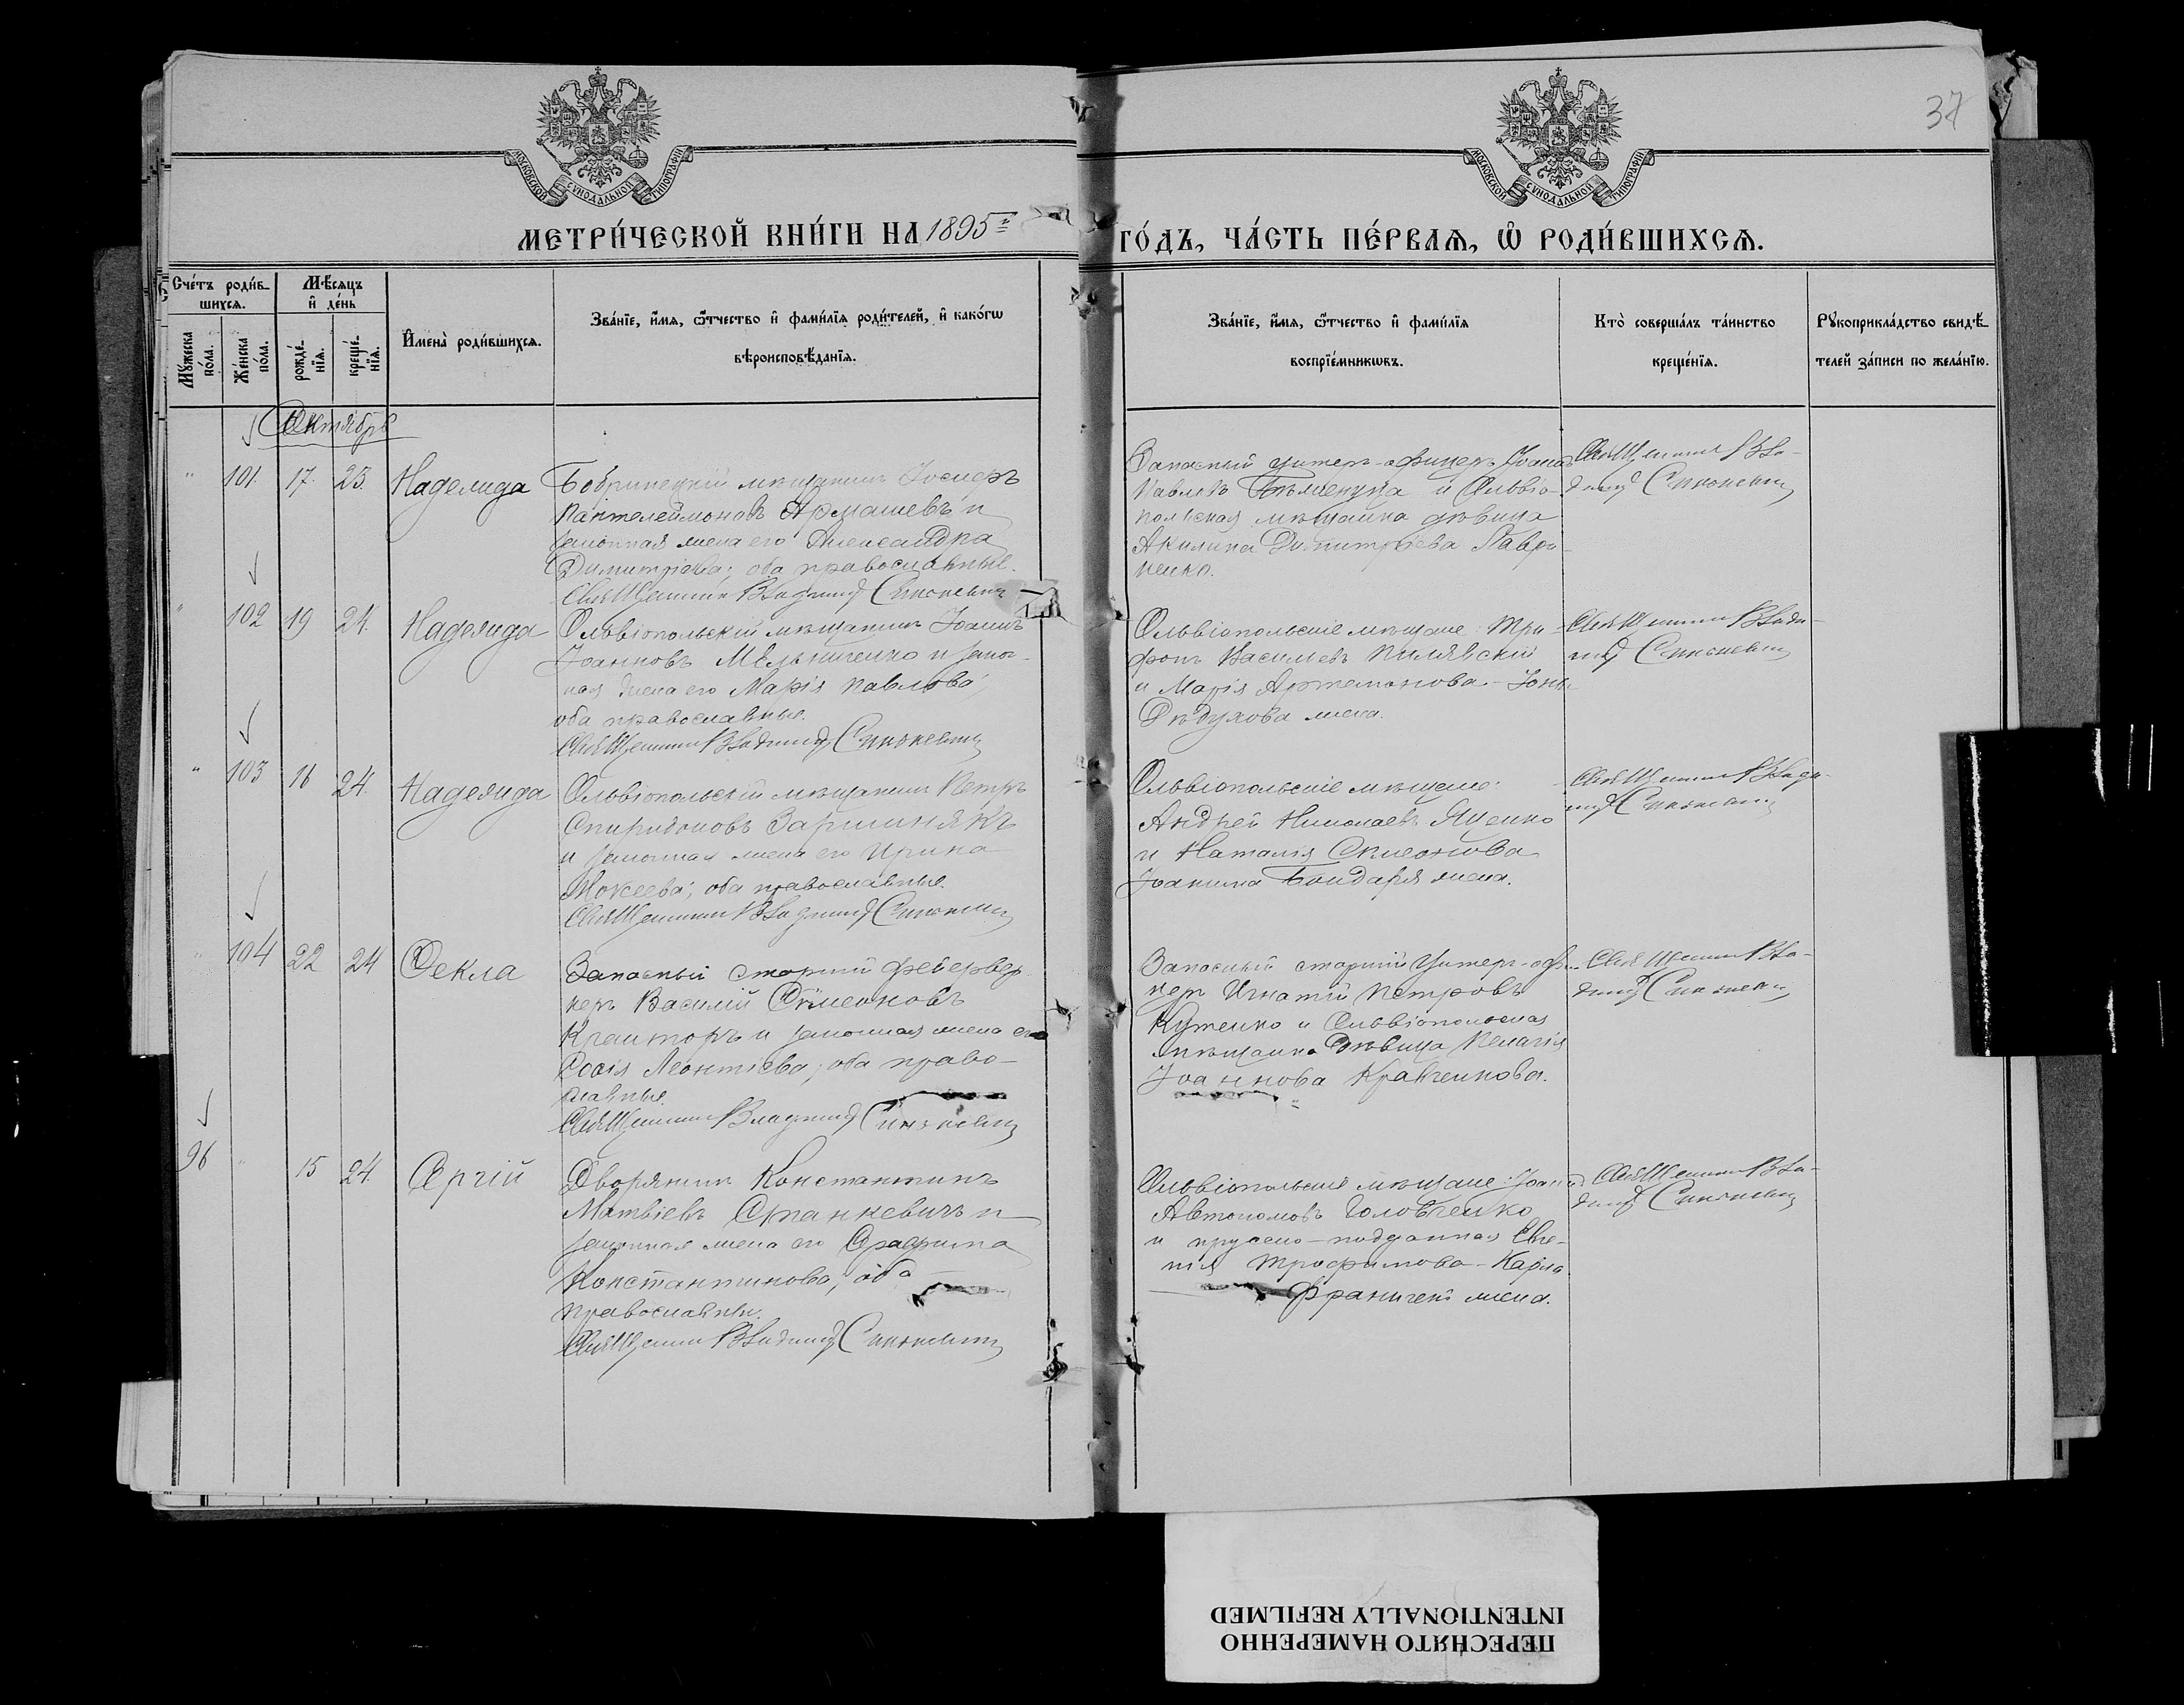 МОСКОВСКОЙ СѴНОДАЛЬНОЙ ТИПОГРАФІИ
МОСКОВСКОЙ СѴНОДАЛЬНОЙ ТИПОГРАФІИ
37
МЕТРИ́ЧЕСКОЙ КНИ́ГИ НА 1895й
ГО́ДЪ, ЧА́СТЬ ПЕ́РВАЯ, Ѡ҆ РОДИ́ВШИХСЯ.
Сче́тъ роди́вшихся.
Мꙋ́жеска по́ла.
Же́нска по́ла.
Мѣ́сяцъ и҆ де́нь
рожде́нїя.
креще́нїя.
И҆мена̀ роди́вшихся.
Зва́нїе, и҆́мя, ѻ҆́тчество и҆ фами́лїя роди́телей, и҆ како́гѡ
вѣроисповѣ́данїя.
Зва́нїе, и҆́мя, ѻ҆́тчество и҆ фами́лїя
воспрїе́мникѡвъ.
Кто̀ соверша́лъ та́инство
креще́нїя.
Рꙋкоприкла́дство свидѣ́-
телей за́писи по жела́нїю.
Октябрь
" 101. 17. 23. Надежда
Бобринецкій мѣщанинъ Іосифъ
Пантелеймоновъ Армашевъ и
законная жена его Александра
Димитріева; оба православные.
Священникъ Владимір Синкевич
Запасный унтеръ-офицеръ Іоаннъ
Павловъ и Ольвіо-
польская мѣщанка дѣвица
Акилина Димитріева Лаври-
ненко.
Священник Вла-
димір Синкевич
" 102 19 24. Надежда
Ольвіопольскій мѣщанинъ Іоаннъ
Іоанновъ Мельниченко и закон-
ная жена его Марія Павлова;
оба православные.
Священник Владимір Синкевич
Ольвіопольскіе мѣщане: Три-
фонъ Васильевъ Пилявскій
и Марія Артемонова - Іоны
Дѣдухова жена.
Священник Влади-
мір Синкевич
" 103 16 24. Надежда
Ольвіопольскій мѣщанинъ Петръ
Спиридоновъ
и законная жена его Ирина
Мокеева; оба православные.
Священник Владимір Синкевич
Ольвіопольскіе мѣщане:
Андрей Николаевъ Яценко
и Наталія Симеонова
Іоанна Бондаря жена.
Священник Влади-
мір Синкевич
" 104 22 24 Ѳекла
Запасный старшій фейервер-
керъ Василій Симеоновъ
и законная жена его
Леонтіева; оба право-
славные.
Священник Владимір Синкевич
Запасный старшій унтеръ-офи-
церъ Игнатій Петровъ
Куценко и Ольвіопольская
мѣщанка дѣвица Пелагія
Іоаннова Кравченкова.
Священник Вла-
димір Синкевич
96 " 15 24. Сергій
Дворянинъ Константинъ
Матвіевъ Станкевичъ и
законная жена его Серафима
Константинова; оба
православны.
Священник Владимір Синкевич
Ольвіопольскіе мѣщане: Іоаннъ
Автономовъ Головченко
и прусско-подданная Евге-
нія Трофимова - Карла
жена.
Священник Вла-
димір Синкевич
ПЕРЕСНЯТО НАМЕРЕННО
INTENTIONALLY REFILMED